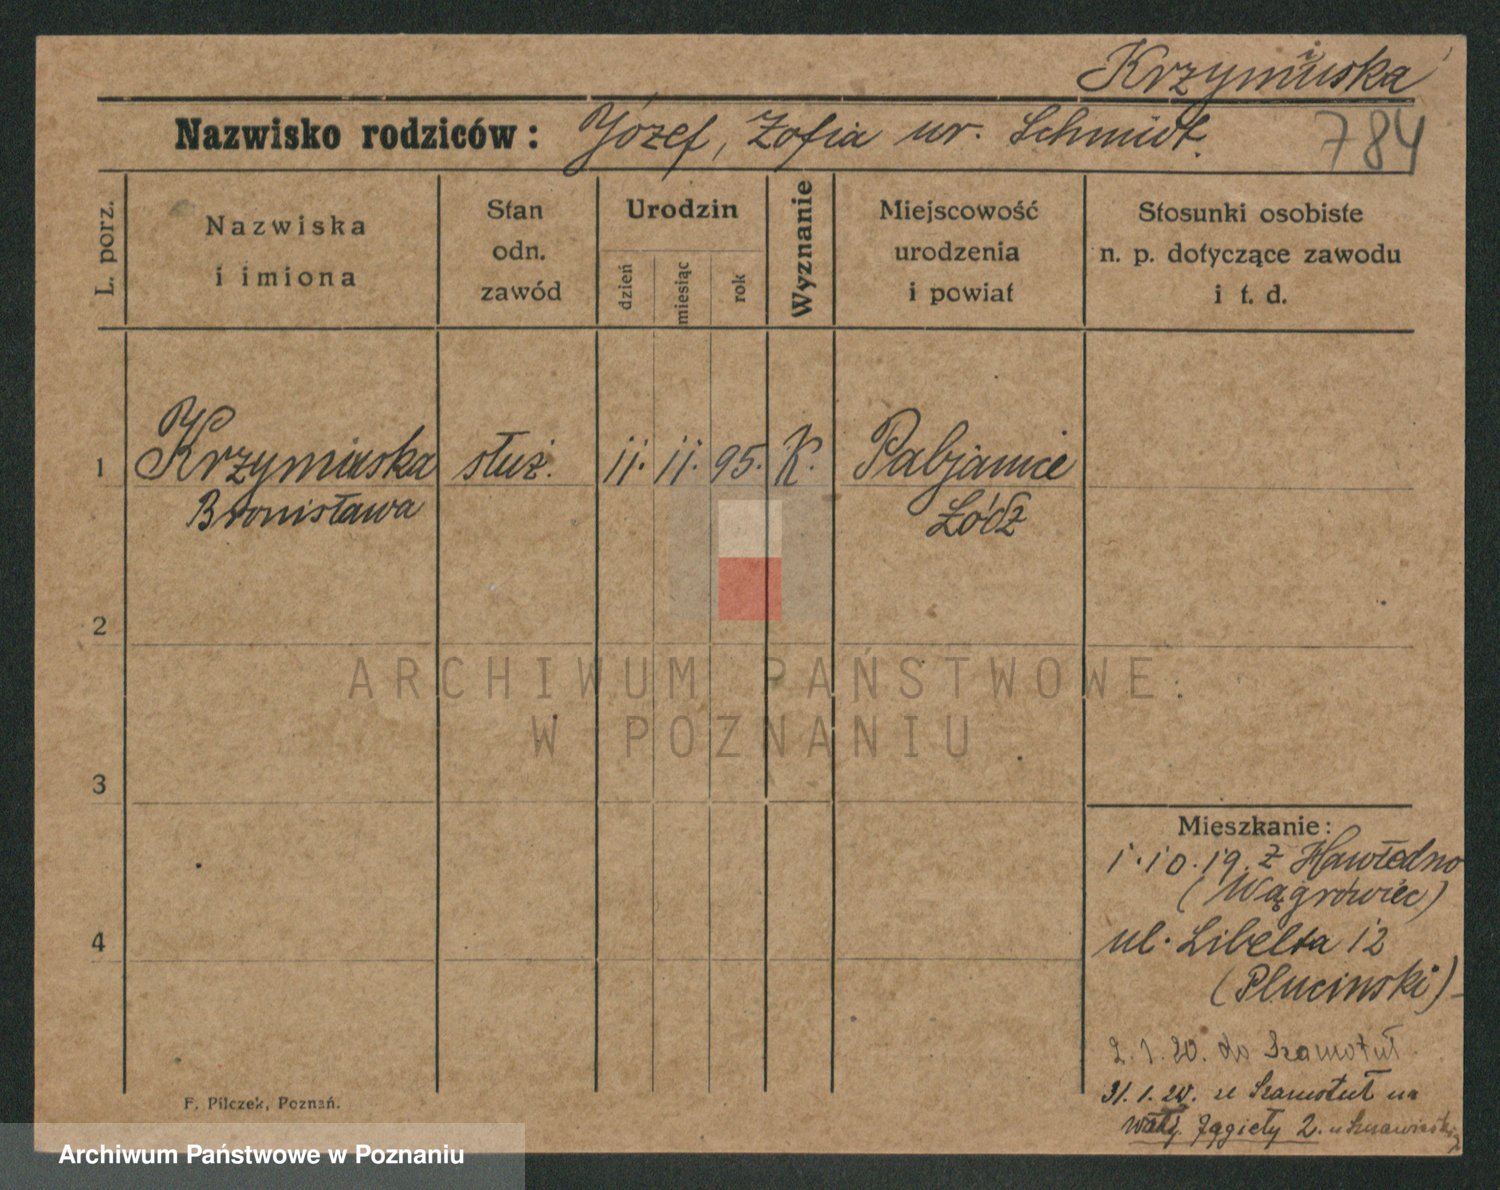 Krzymuska
Nazwisko rodziców: Józef, Zofia ur. Schmidt.
784
L. porz.
Nazwiska
i imiona
Stan
odn.
zawód
Urodzin
dzień
miesiąc
rok
Wyznanie
Miejscowość
urodzenia
i powiat
Stosunki osobiste
n. p. dotyczące zawodu
i t. d.
1 Krzymuska służ. 11. 11. 95. K. Pabjanice
Bronisława Łódź
2
ARCHIWUM PAŃSTWOWE
W POZNANIU
3
Mieszkanie:
1.10.19. z
(Wągrówiec)
4
ul. Libelta 12
(Plucinski)
2.1.20. do Szamotuł
31.1.20. ze Szamotuł na
Wały Jagiełły 2.
F. Pilczek, Poznań.
Archiwum Państwowe w Poznaniu